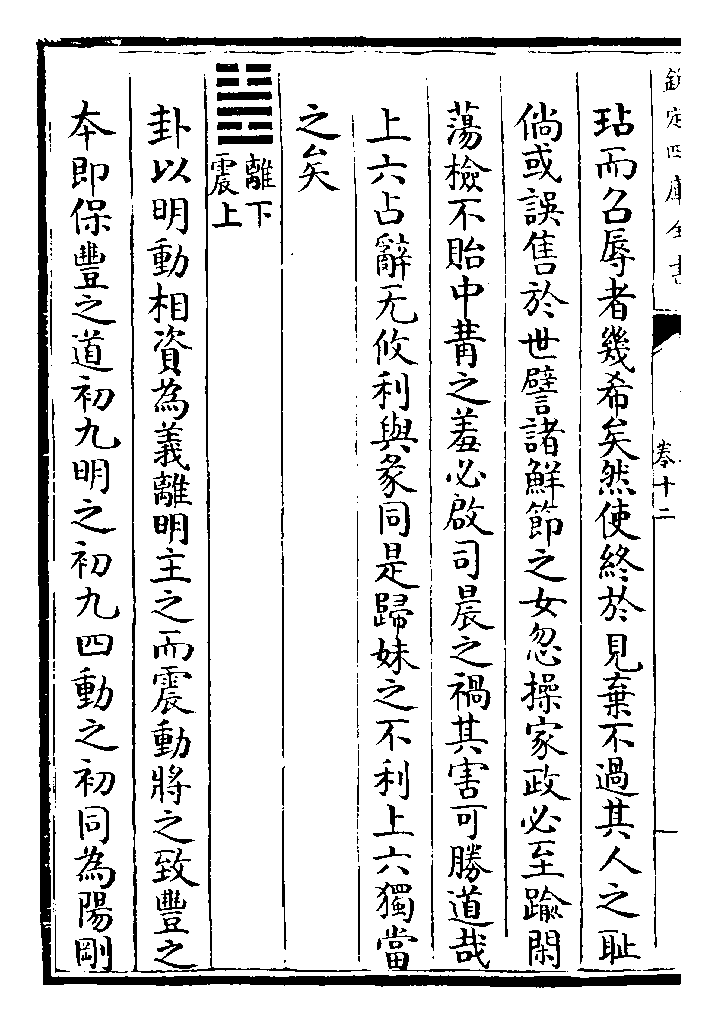 欽定四庫全書
卷十二
玷而召辱者幾希矣然使終於見棄不過其人之恥
倘或誤售於世譬諸鮮節之女忽操家政必至踰閑
蕩檢不貽中冓之羞必啟司晨之禍其害可勝道哉
上六占辭无攸利與彖同是歸妹之不利上六獨當
之矣
離下
震上
卦以明動相資為義離明主之而震動將之致豐之
本即保豐之道初九明之初九四動之初同為陽剛